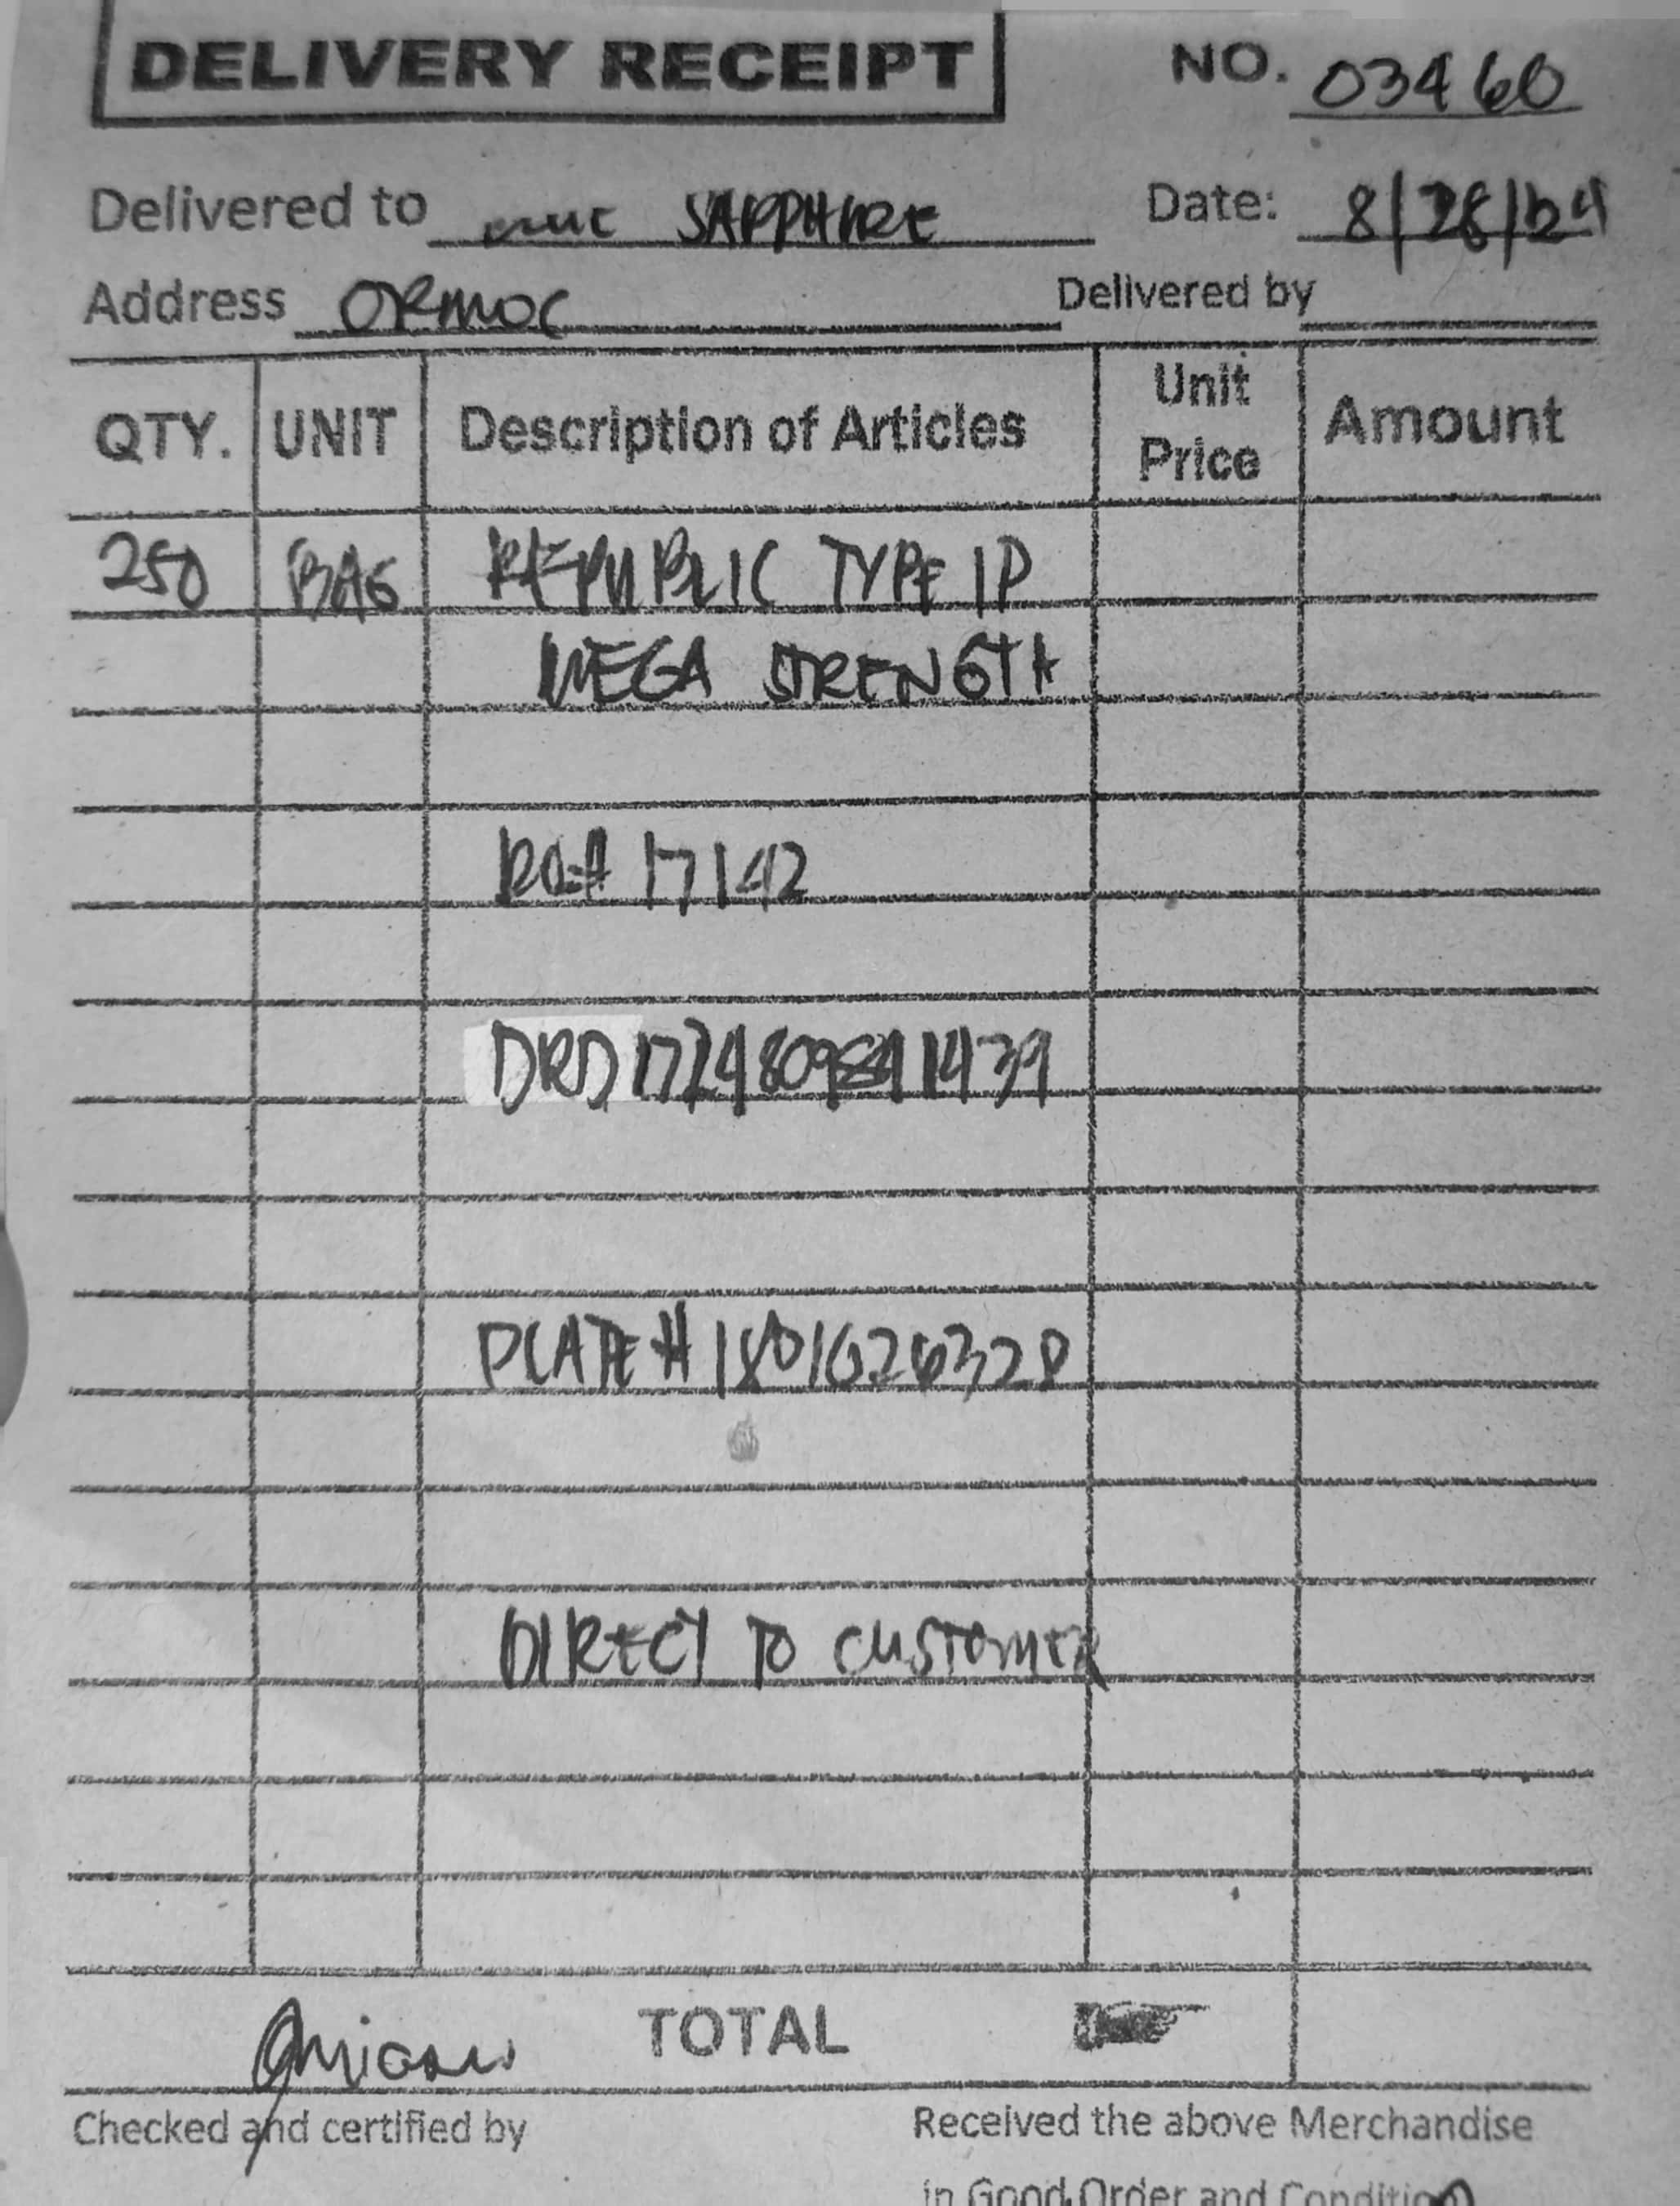 DELIVERY RECEIPT NO. 03460
Delivered to SAPPHIRE Date: 8/28/24
Address ORMOC Delivered by
QTY. UNIT Description of Articles Unit Price Amount
250 BAG REPUBLIC TYPE 1P
MEGA STRENGTH
17142
DRD1724809841439
PLATE # 1801626328
DIRECT TO CUSTOMER
TOTAL
Checked and certified by Received the above Merchandise
in Good Order and Condition